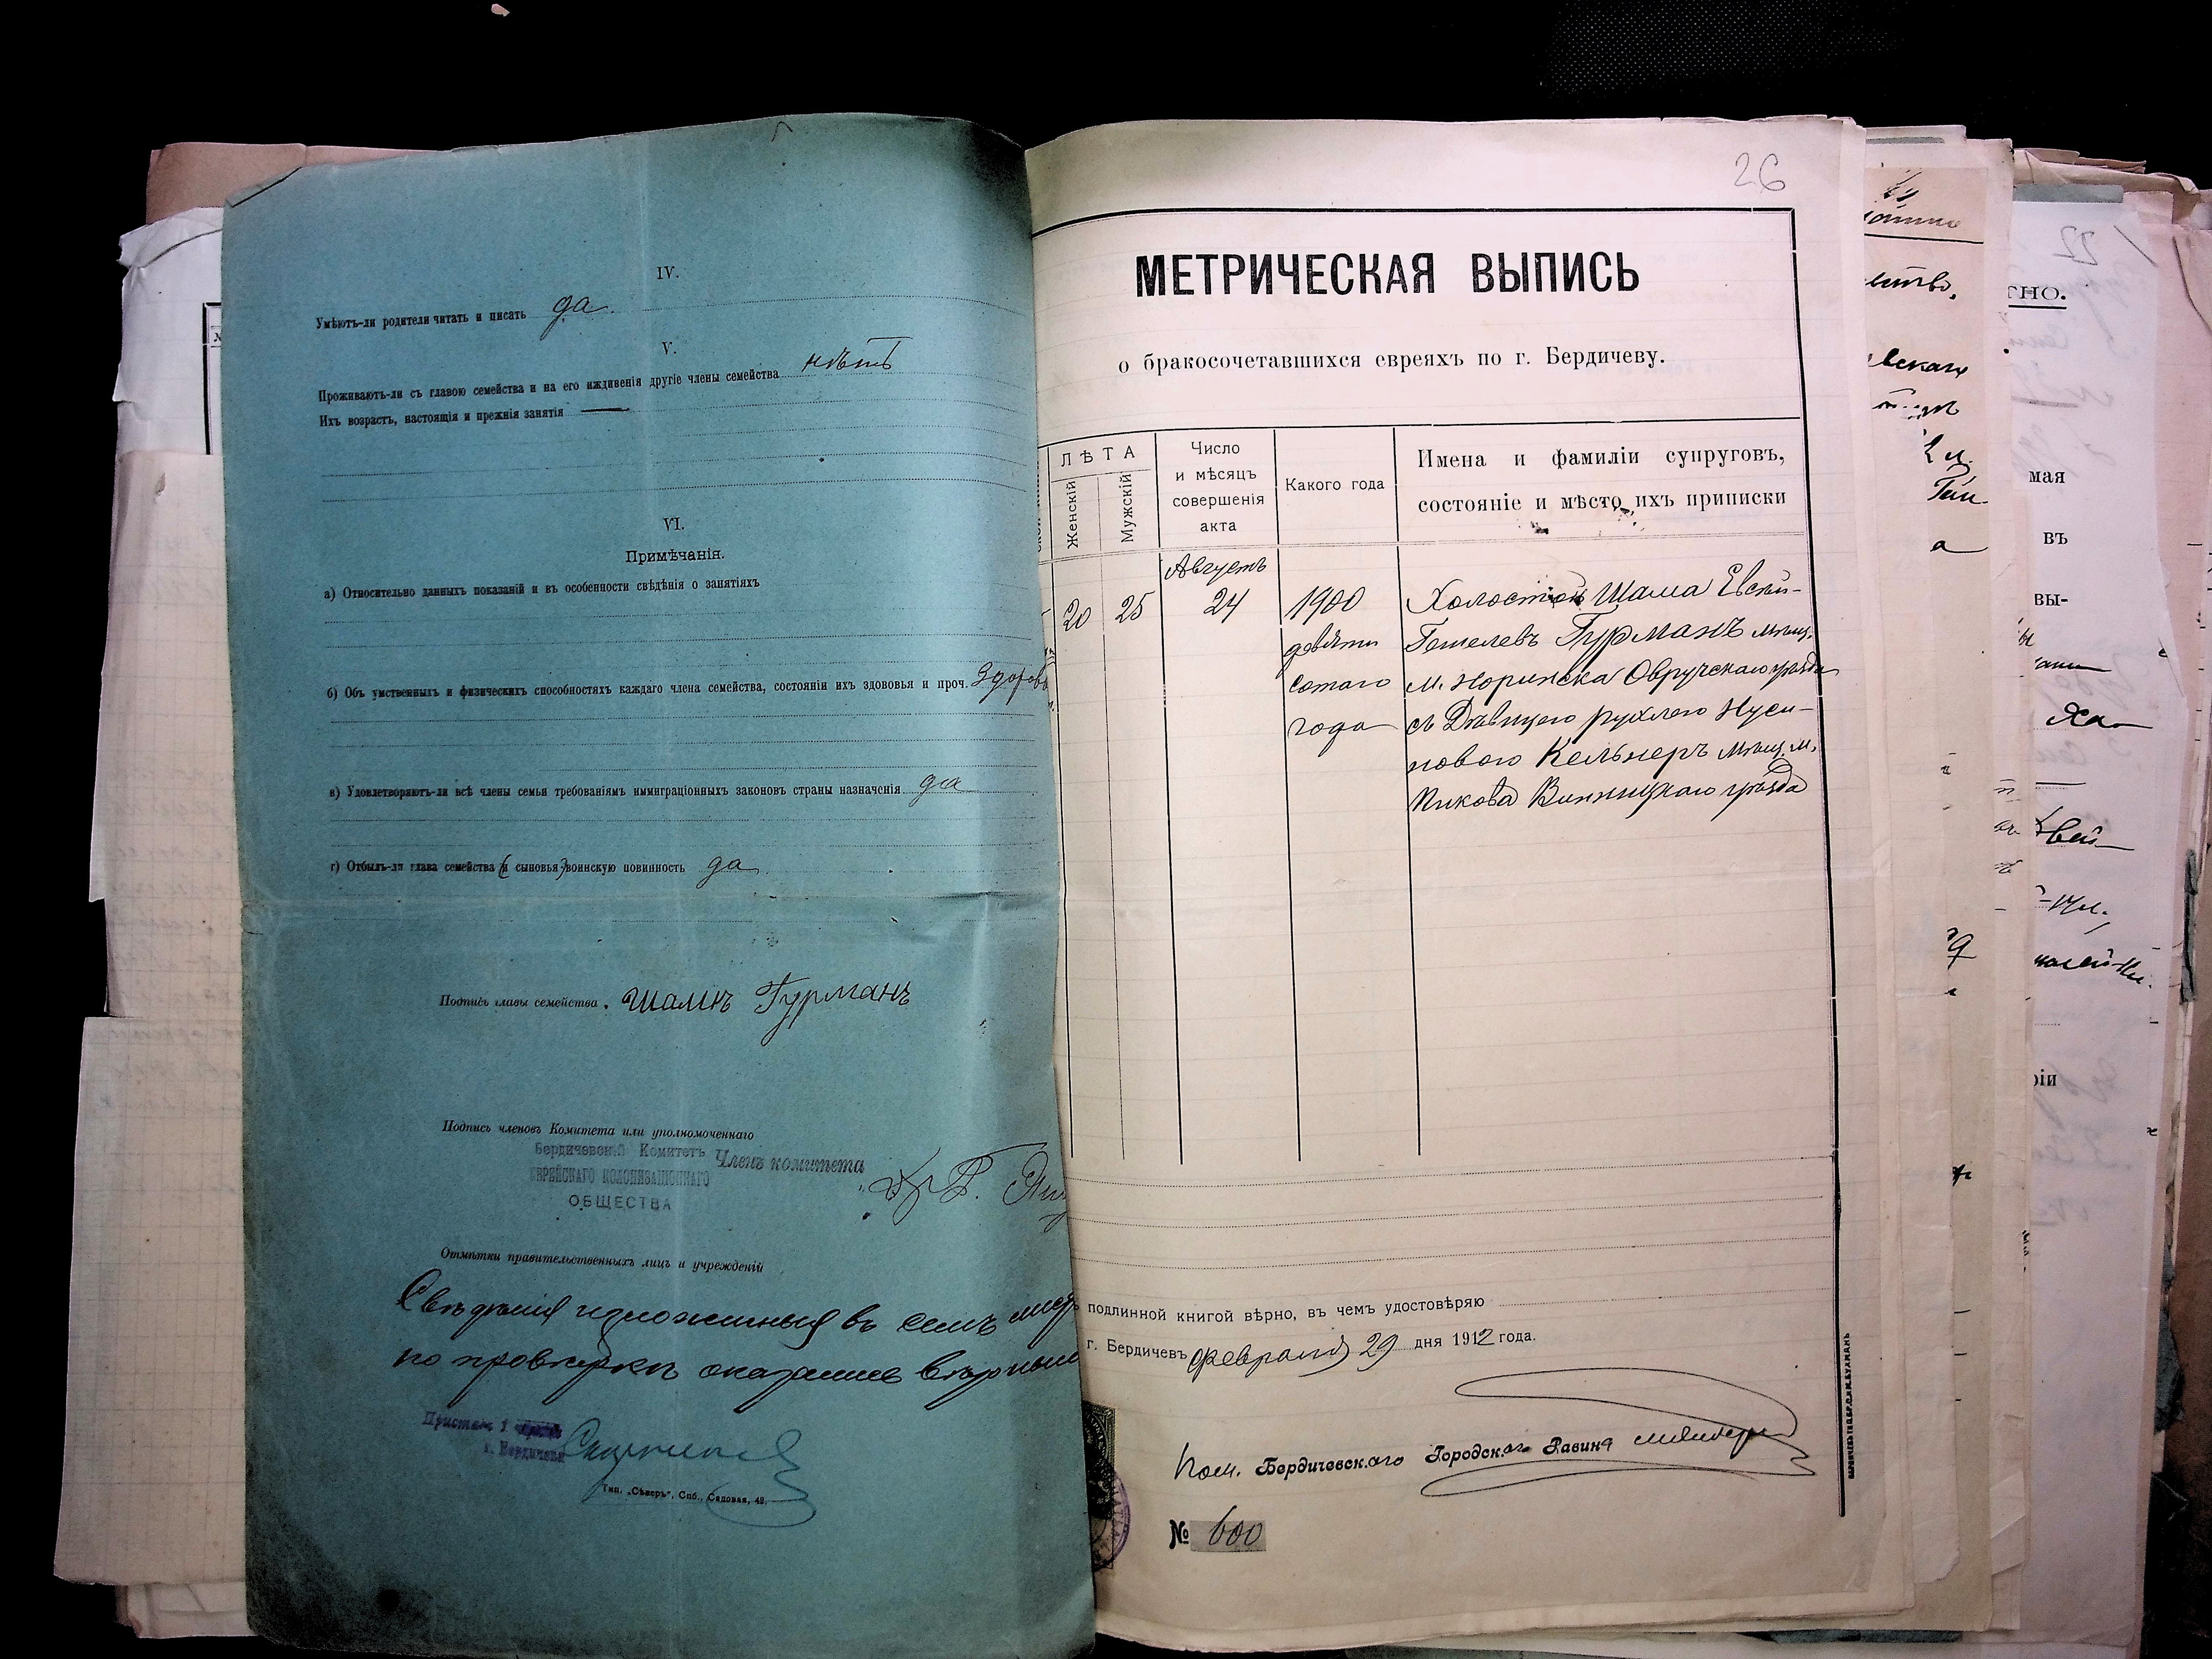 IV.
Умѣютъ-ли родители читать и писать да.
V.
Проживаютъ-ли съ главою семейства и на его иждивенія другіе члены семейства нѣтъ
Ихъ возрастъ, настоящія и прежнія занятія —
VI.
Примѣчанія.
а) Относительно данныхъ показаній и въ особенности свѣдѣнія о занятіяхъ
б) Объ умственныхъ и физическихъ способностяхъ каждаго члена семейства, состояніи ихъ здововья и проч. Здоровы
в) Удовлетворяютъ-ли всѣ члены семьи требованіямъ иммиграціонныхъ законовъ страны назначенія да
г) Отбылъ-ли глава семейства (и сыновья) воинскую повинность да
Подпись главы семейства. Шамъ Гурманъ
Подпись членовъ Комитета или уполномоченнаго
Бердичевскій Комитетъ Членъ комитета
ЕВРЕЙСКАГО КОЛОНИЗАЦІОННАГО
ОБЩЕСТВА
Отмѣтки правительственныхъ лицъ и учрежденій
Свѣдѣнія изложенныя въ семъ
по провѣркѣ оказались вѣрными
Приставъ 1
г. Бердичева
Тип. „Сѣверъ", Спб., Садовая, 42.
26
МЕТРИЧЕСКАЯ ВЫПИСЬ
о бракосочетавшихся евреяхъ по г. Бердичеву.
ЛѢТА
Женскій
Мужскій
Число
и мѣсяцъ
совершенія
акта
Какого года
Имена и фамиліи супруговъ,
состояніе и мѣсто ихъ приписки
Августъ
20 25 24 1900 Холостой Шама Евсей-
девяти Гешелевъ Гурманъ мѣщ.
сотаго м. Норинска Овручскаго уѣзда
года съ Дѣвицею Рухлею Нуси-
новою Кельнеръ мѣщ. м.
Пикова Винницкаго уѣзда
подлинной книгой вѣрно, въ чемъ удостовѣряю
г. Бердичевъ Февраля 29 дня 1912 года.
Пом. Бердичевскаго Городского Равина
№ 600
ТНО.
мая
въ
вы-